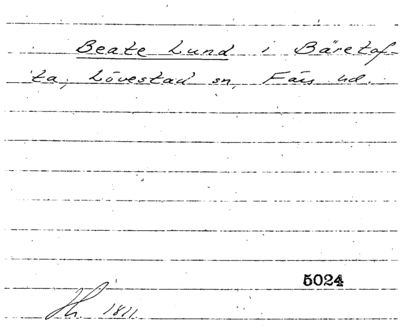 Beate Lund i Bäretof-
ta, Lövestad sn, Färs hd.
5024
Hh. 1811.